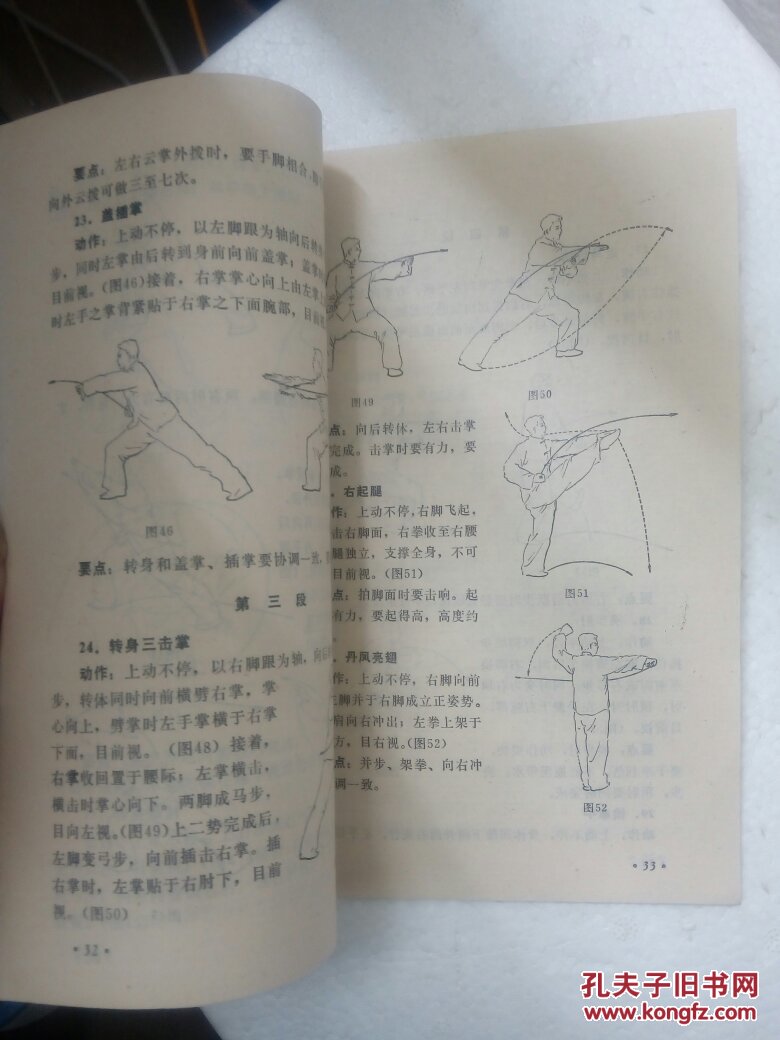 要点：左右云掌外拨时，要手脚相合，
向外云拨可做三至七次。
23．盖插掌
动作：上动不停，以左脚跟为轴向后转
步，同时左掌由后转到身前向前盖掌；盖掌
目前视。（图46）接着，右掌掌心向上由左掌
时左手之掌背紧贴于右掌之下面腕部，目前
图46
要点：转身和盖掌、插掌要协调一致，
第三段
24．转身三击掌
动作：上动不停，以右脚跟为轴，向后
步，转体同时向前横劈右掌，掌
心向上，劈掌时左手掌横于右掌
下面，目前视。（图48）接着，
右掌收回置于腰际；左掌横击，
横击时掌心向下。两脚成马步，
目向左视。（图49）上二势完成后，
左脚变弓步，向前插击右掌。插
右掌时，左掌贴于右肘下，目前
视。（图50）
·32·
图49
图50
点：向后转体，左右击掌
完成。击掌时要有力，要
成。
．右起腿
作：上动不停，右脚飞起，
击右脚面，右拳收至右腰
腿独立，支撑全身，不可
目前视。（图51）
点：拍脚面时要击响。起
有力，要起得高，高度约
图51
．丹凤亮翅
作：上动不停，右脚向前
脚并于右脚成立正姿势。
肩向右冲出；左拳上架于
方，目右视。（图52）
点：并步、架拳、向右冲
调一致。
图52
·33·
孔夫子旧书网
www.kongfz.com